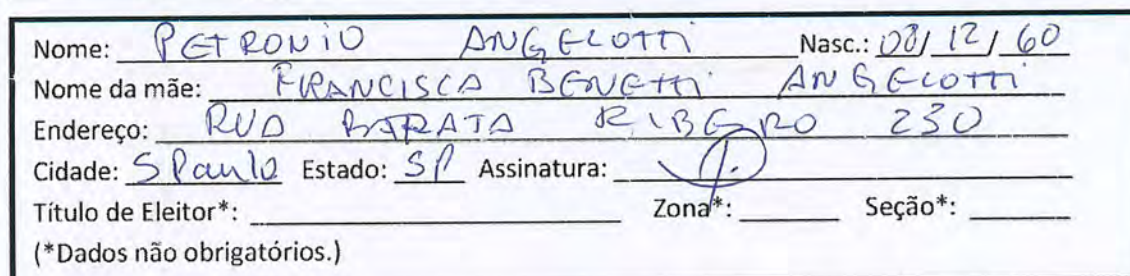 Nome: PETRONIO ANGELOTTI Nasc.: 08/12/60
Nome da mãe: FRANCISCA BENETTI ANGELOTTI
Endereço: RUA BARATA RIBERO 230
Cidade: S Paulo Estado: SP Assinatura:
Título de Eleitor*: Zona*: Seção*:
(*Dados não obrigatórios.)